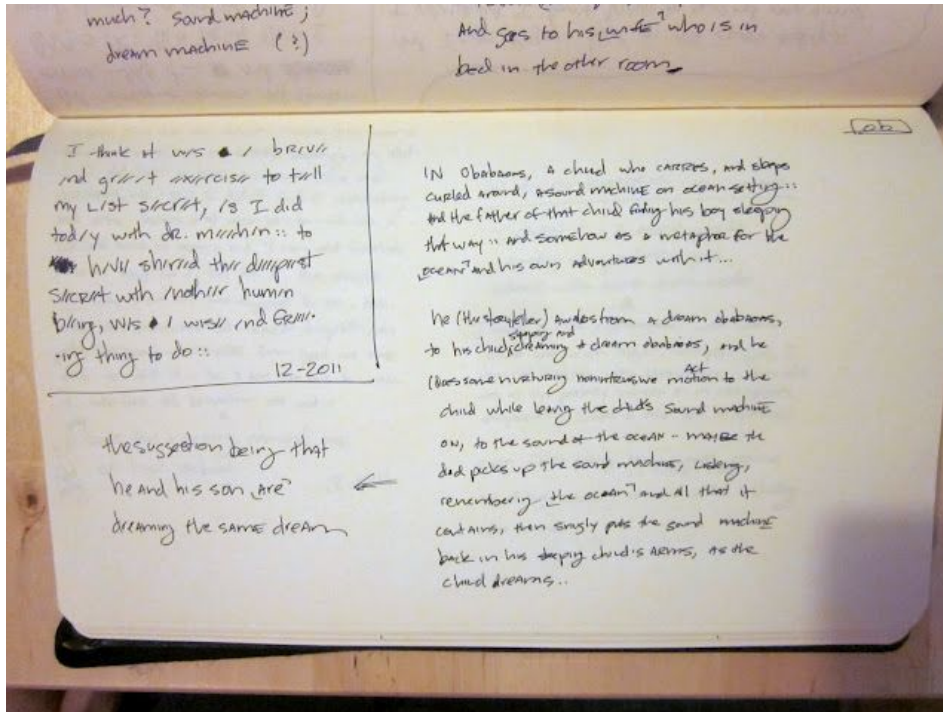 much? sound machine;
dream machine (?)
And goes to his ⌞wife⌝ who is in
bed in the other room
ob
I think it w/s / br/v//
/nd gr///t //x//rcis// to t//ll
my l/st s//cr//t, /s I did
tod/y with dr. m////ch/n :: to
h/v// sh/r//d th// d////p//st
s//cr//t with /noth//r hum/n
b//ing, w/s / wis// /nd fr////-
-ing thing to do ::
12-2011
the suggestion being that
he and his son ⌞are⌝
dreaming the same dream
IN Obabaoms, A child who carries, and sleeps
curled around, a sound machine on ocean setting::
And the father of that child finding his boy sleeping
that way :: and somehow as a metaphor for the
⌞ocean⌝ and his own adventures with it...
he (the storyteller) awakes from a dream obabaoms,
to his child, sleeping and dreaming a dream obabaoms, and he
(does some nurturing nonintrusive motion Act to the
child while leaving the child's sound machine
on, to the sound of the ocean - maybe the
dad picks up the sound machine, listening,
remembering ⌞the ocean⌝ and all that it
contains, then snugly puts the sound machine
back in his sleeping child's arms, as the
child dreams..